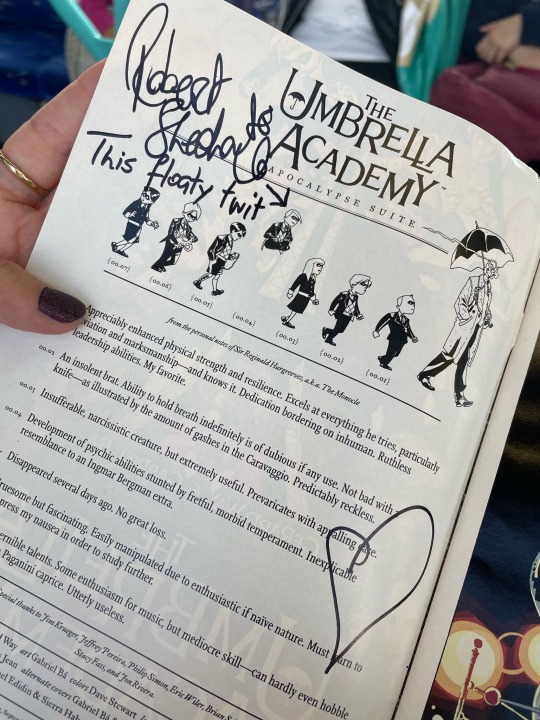 Robert
Sheehan
This floaty twit
THE
UMBRELLA
ACADEMY
APOCALYPSE SUITE
{00.07} {00.06} {00.05} {00.04} {00.03} {00.02} {00.01}
from the personal notes of Sir Reginald Hargreeves, a.k.a. The Monocle
Appreciably enhanced physical strength and resilience. Excels at everything he tries, particularly
viation and marksmanship—and knows it. Dedication bordering on inhuman. Ruthless
leadership abilities. My favorite.
00.02 An insolent brat. Ability to hold breath indefinitely is of dubious if any use. Not bad with a
knife—as illustrated by the amount of gashes in the Caravaggio. Predictably reckless.
00.03 Insufferable, narcissistic creature, but extremely useful. Prevaricates with appalling ease.
00.04 Development of psychic abilities stunted by fretful, morbid temperament. Inexplicable
resemblance to an Ingmar Bergman extra.
Disappeared several days ago. No great loss.
ruesome but fascinating. Easily manipulated due to enthusiastic if naïve nature. Must learn to
press my nausea in order to study further.
ernible talents. Some enthusiasm for music, but mediocre skill—can hardly even hobble
Paganini caprice. Utterly useless.
pecial thanks to Jim Krueger, Jeffrey Pereira, Philip Simon, Eric Wiler, Brian S
Stacy Fass, and Jon Rivera.
d Way art Gabriel Bá colors Dave Stewart
Jean alternate covers Gabriel B
el Edidin & Sierra Hah